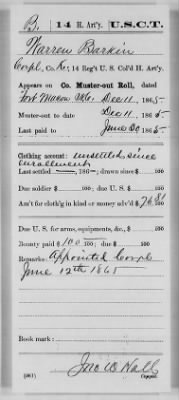 B. 14 H. Art'y. U.S.C.T.
Warren Barkin
Corpl, Co. K, 14 Reg't U. S. Col'd H. Art'y.
Appears on Co. Muster-out Roll, dated
Fort Macon N.C. Dec 11, 1865.
Muster-out to date Dec 11, 1865.
Last paid to June 30, 1865.
Clothing account: unsettled since
enrollment
Last settled 186 ; drawn since $ 100
Due soldier $ 100; due U. S. $ 100
Am't for clothing in kind or money adv'd $ 76 81/100
Due U. S. for arms, equipments, &c., $ 100
Bounty paid $ 100 100; due $ 100
Remarks: Appointed Corpl
June 12th 1865
Book mark:
Jno W Hall
(361) Copyist.